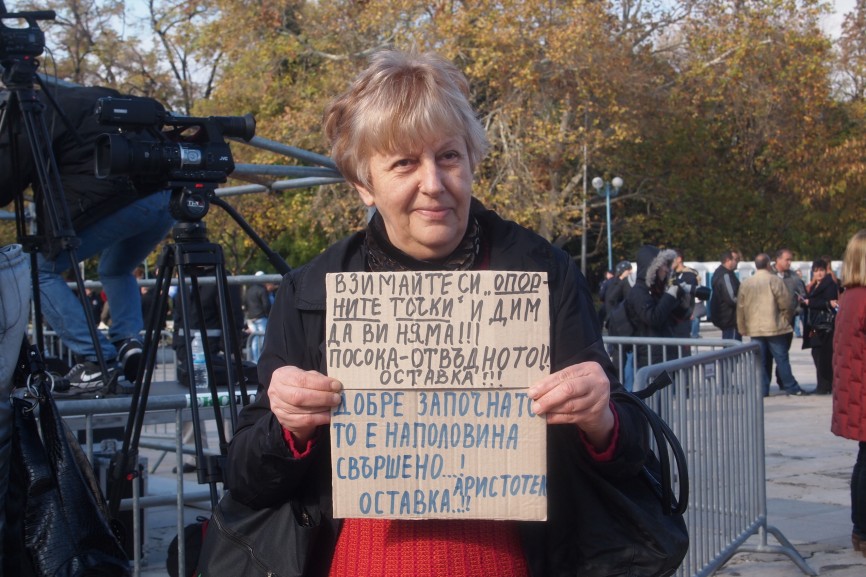 ВЗИМАЙТЕ СИ „ОПОР-
НИТЕ ТОЧКИ“ И ДИМ
ДА ВИ НЯМА!!!
ПОСОКА-ОТВЪДНОТО!!
ОСТАВКА!!!
ДОБРЕ ЗАПОЧНАТО
ТО Е НАПОЛОВИНА
СВЪРШЕНО...!
АРИСТОТЕЛ
ОСТАВКА..!!